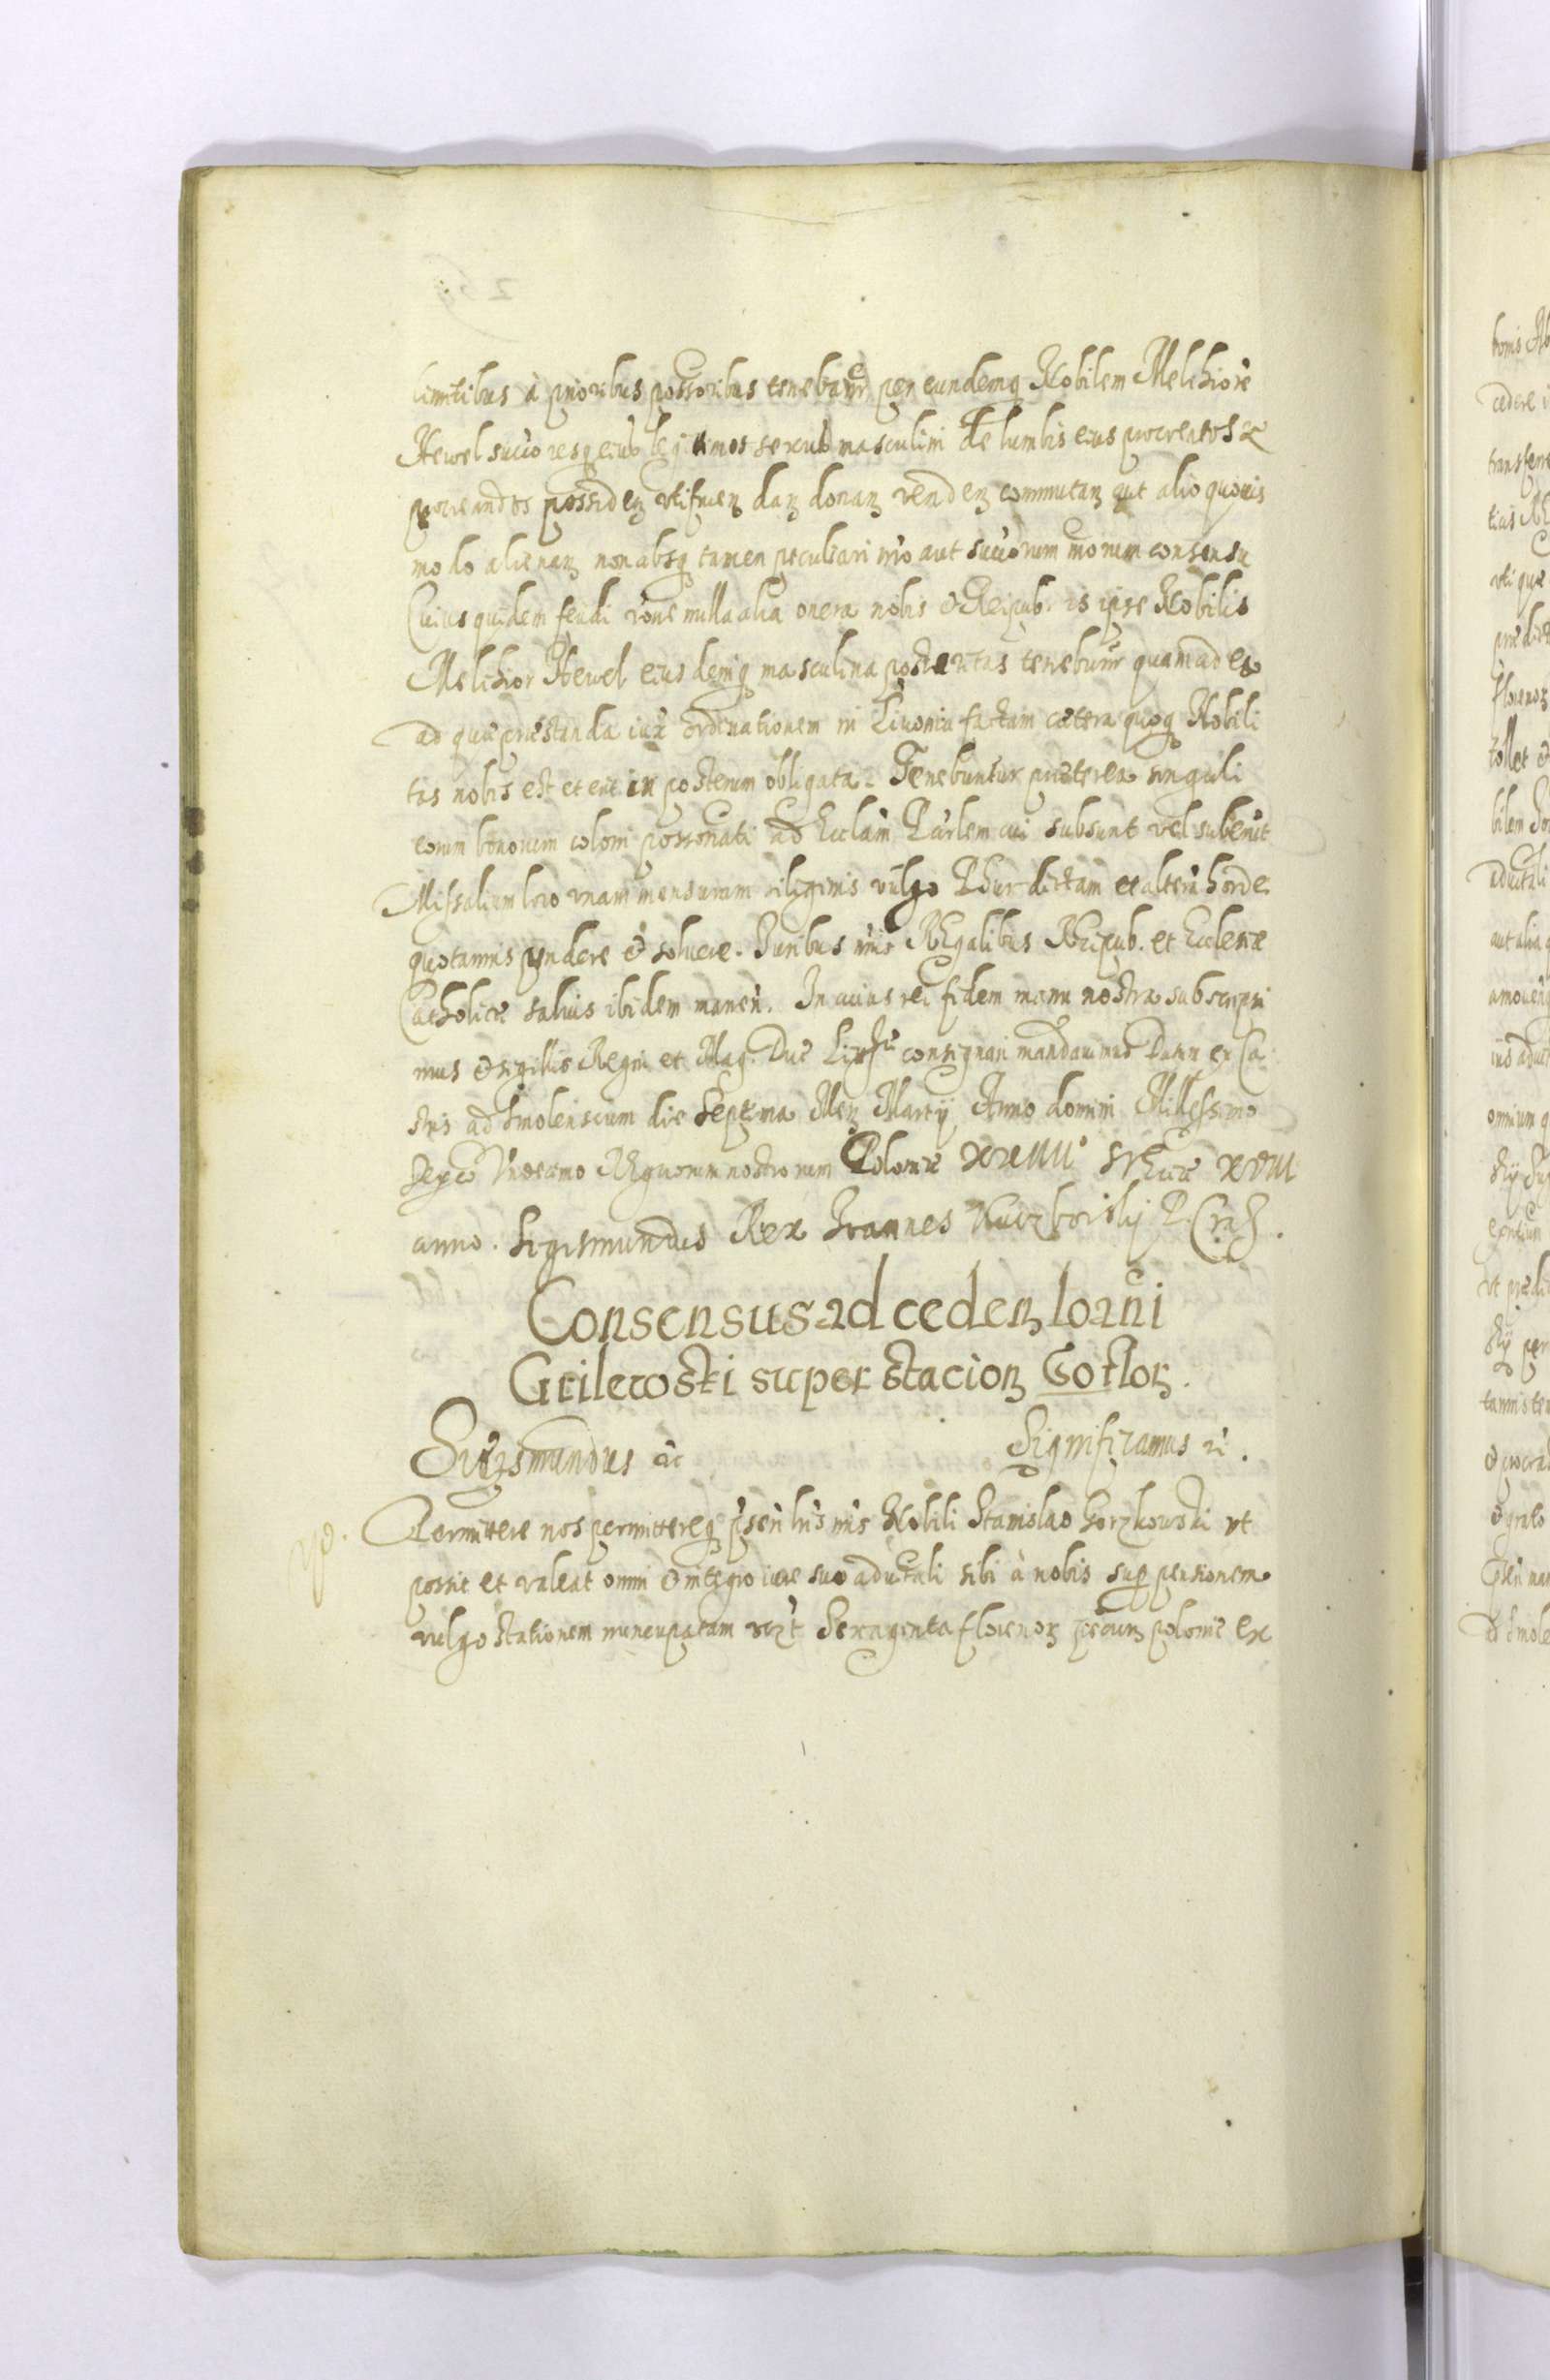 limitibus à prioribus possoribus tenebatur per eundemq Nobilem Melchiorē
Hewel succōresq eius legitimos sexus masculini de lumbis eius procreatos &
procreandos possidenꝫ utifruenꝫ danꝫ donanꝫ vendenꝫ commutanꝫ aut alio quovis
modo alienanꝫ non absq tamen peculiari nro aut succōrum nrorum consensu
Cuius quidem feudi rōne nulla alia onera nobis & Reipub. is ipse Nobilis
Melchior Hewel eiusdemq masculina posteritas tenebuntur quam ad ea
ad quæ præstanda iux ordinationem in Livonia factam cætera quoq Nobili
tas nobis est et erit in posterum obligata. Tenebuntur præterea singuli
eorum bonorum coloni possonati ad Ecclām Parlem cui subsunt vel suberūt
Missalium loco unam mensuram siliginis vulgo Phur dictam et alterā horde
quotannis pendere & solvere. Juribus nris Regalibus Reipub. et Ecclesiæ
Catholicæ salvis ibidem manen. In cuius rei fidem manu nostra subscripsi
mus & sigillis Regni et Mag. Duc Lithu consignari mandavimus Datum ex Ca
stris ad Smolenscum die Septima Menꝫ Martij Anno domini Millessimo
Sexcō Undecimo Regnorum nostrorum Poloniæ XXIIII Sveciæ XVIII
anno. Sigismundus Rex Joannes Kuczborskij P. Crac.
Consensus ad cedenꝫ Ioanni
Grilewoski super stacionꝫ 60 florꝫ.
Sigismundus &c Significamus &c.
Permittere nos permittereq pñsen lris nris Nobili Stanislao Gorzkowski ut
possit et valeat omni & integro iure suo advitali sibi à nobis super pensionem
vulgo stationem nuncupatam vꝫt Sexaginta florenorꝫ pecun polonie ex